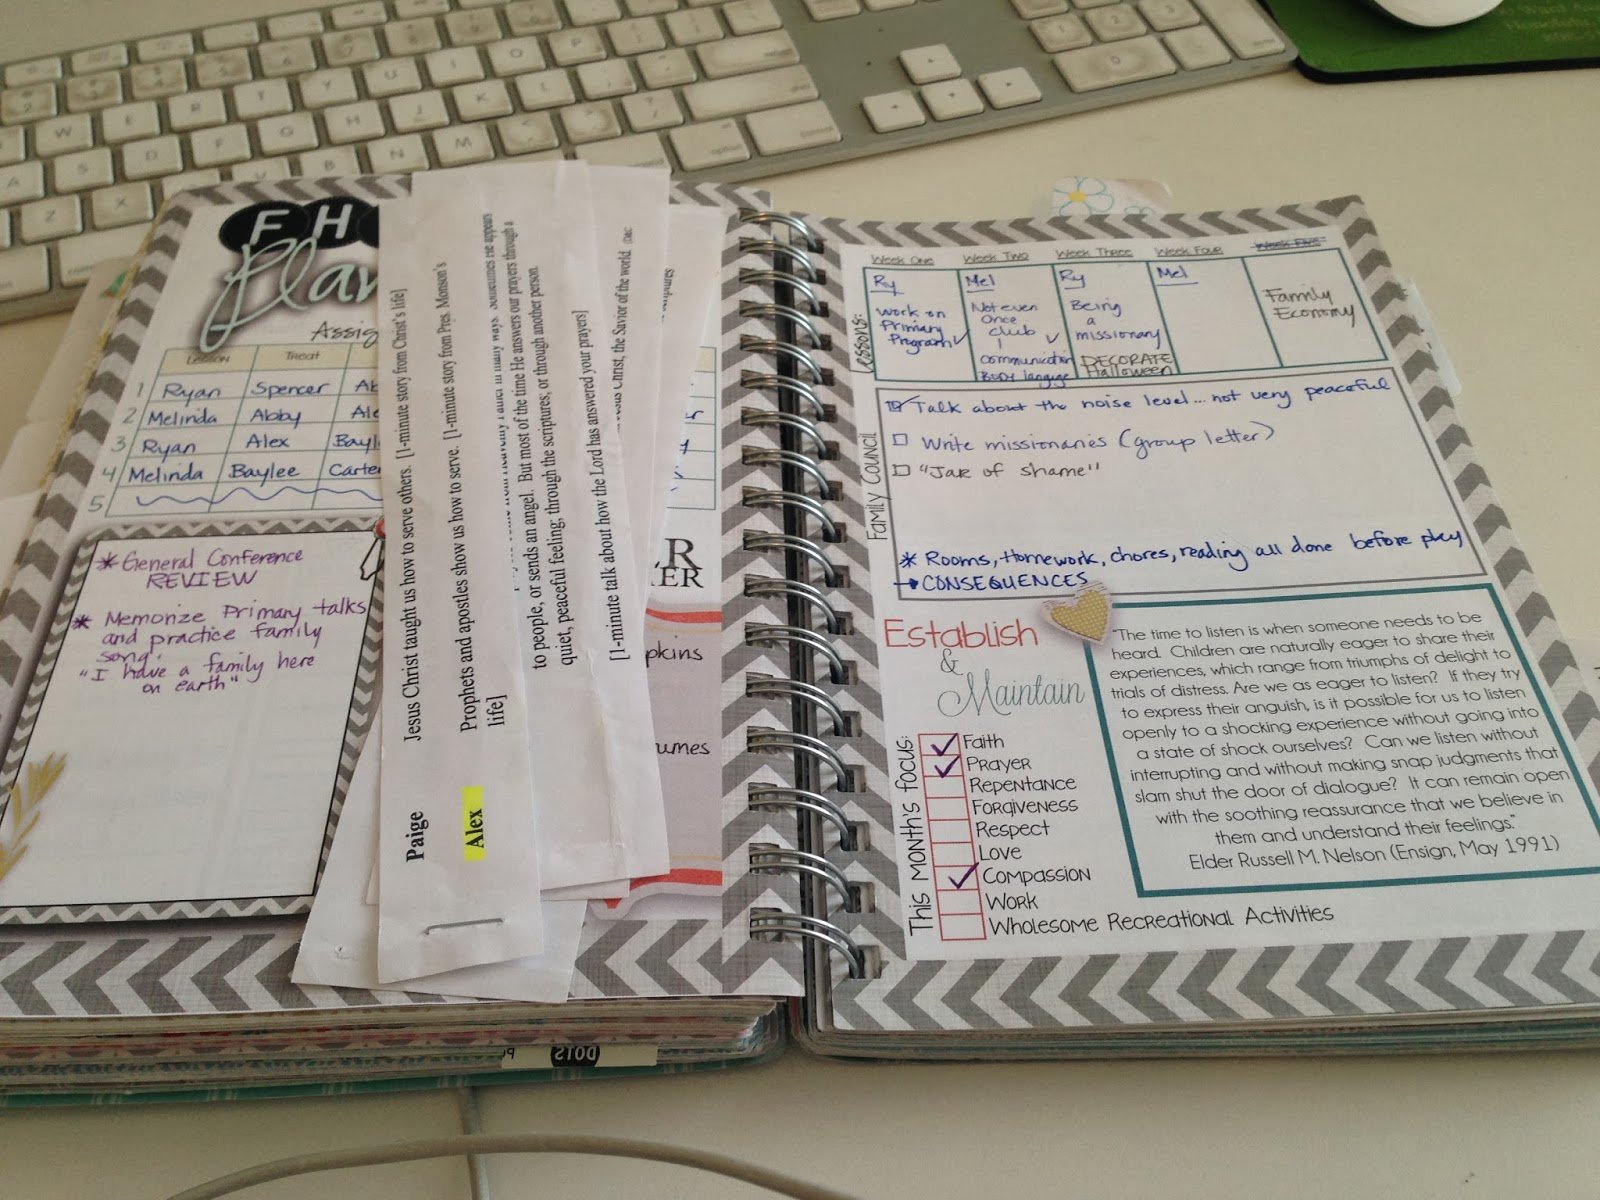 FH
Plan
Assig
Lesson Treat
1 Ryan Spencer Ab
2 Melinda Abby Ale
3 Ryan Alex Bayl
4 Melinda Baylee Carte
5
* General Conference
REVIEW
* Memorize Primary talks
and practice family
song.
"I have a family here
on earth"
Paige Jesus Christ taught us how to serve others. [1-minute story from Christ's life]
Alex Prophets and apostles show us how to serve. [1-minute story from Pres. Monson's
life]
to people, or sends an angel. But most of the time He answers our prayers through a
quiet, peaceful feeling; through the scriptures; or through another person.
[1-minute talk about how the Lord has answered your prayers]
Christ, the Savior of the world
pkins
umes
Week One Week Two Week Three Week Four Week Five
Lessons:
Ry
Work on
Primary
Program ✓
Mel
Not even
once
club ✓
communication
Body language
Ry
Being
a
missionary
DECORATE
Halloween
Mel
Family
Economy
Family Council
Talk about the noise level... not very peaceful
Write missionaries (group letter)
"Jar of shame"
* Rooms, Homework, chores, reading all done before play
→ CONSEQUENCES
Establish
&
Maintain
This month's focus:
Faith
Prayer
Repentance
Forgiveness
Respect
Love
Compassion
Work
Wholesome Recreational Activities
"The time to listen is when someone needs to be
heard. Children are naturally eager to share their
experiences, which range from triumphs of delight to
trials of distress. Are we as eager to listen? If they try
to express their anguish, is it possible for us to listen
openly to a shocking experience without going into
a state of shock ourselves? Can we listen without
interrupting and without making snap judgments that
slam shut the door of dialogue? It can remain open
with the soothing reassurance that we believe in
them and understand their feelings."
Elder Russell M. Nelson (Ensign, May 1991)